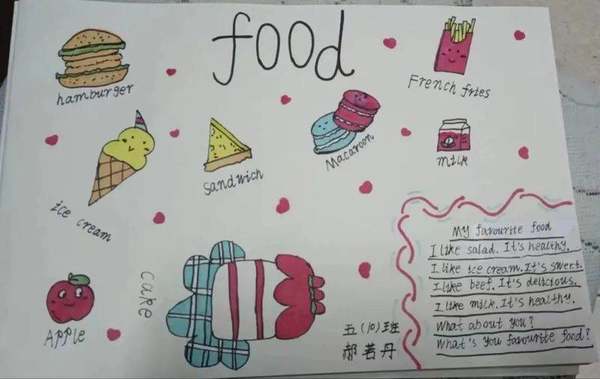 food
hamburger
French fries
ice cream
sandwich
Macaroon
milk
cake
Apple
五(10)班
郝若丹
My favourite food
I like salad. It's healthy.
I like ice cream. It's sweet.
I like beef. It's delicious.
I like milk. It's healthy.
What about you?
What's you favourite food?